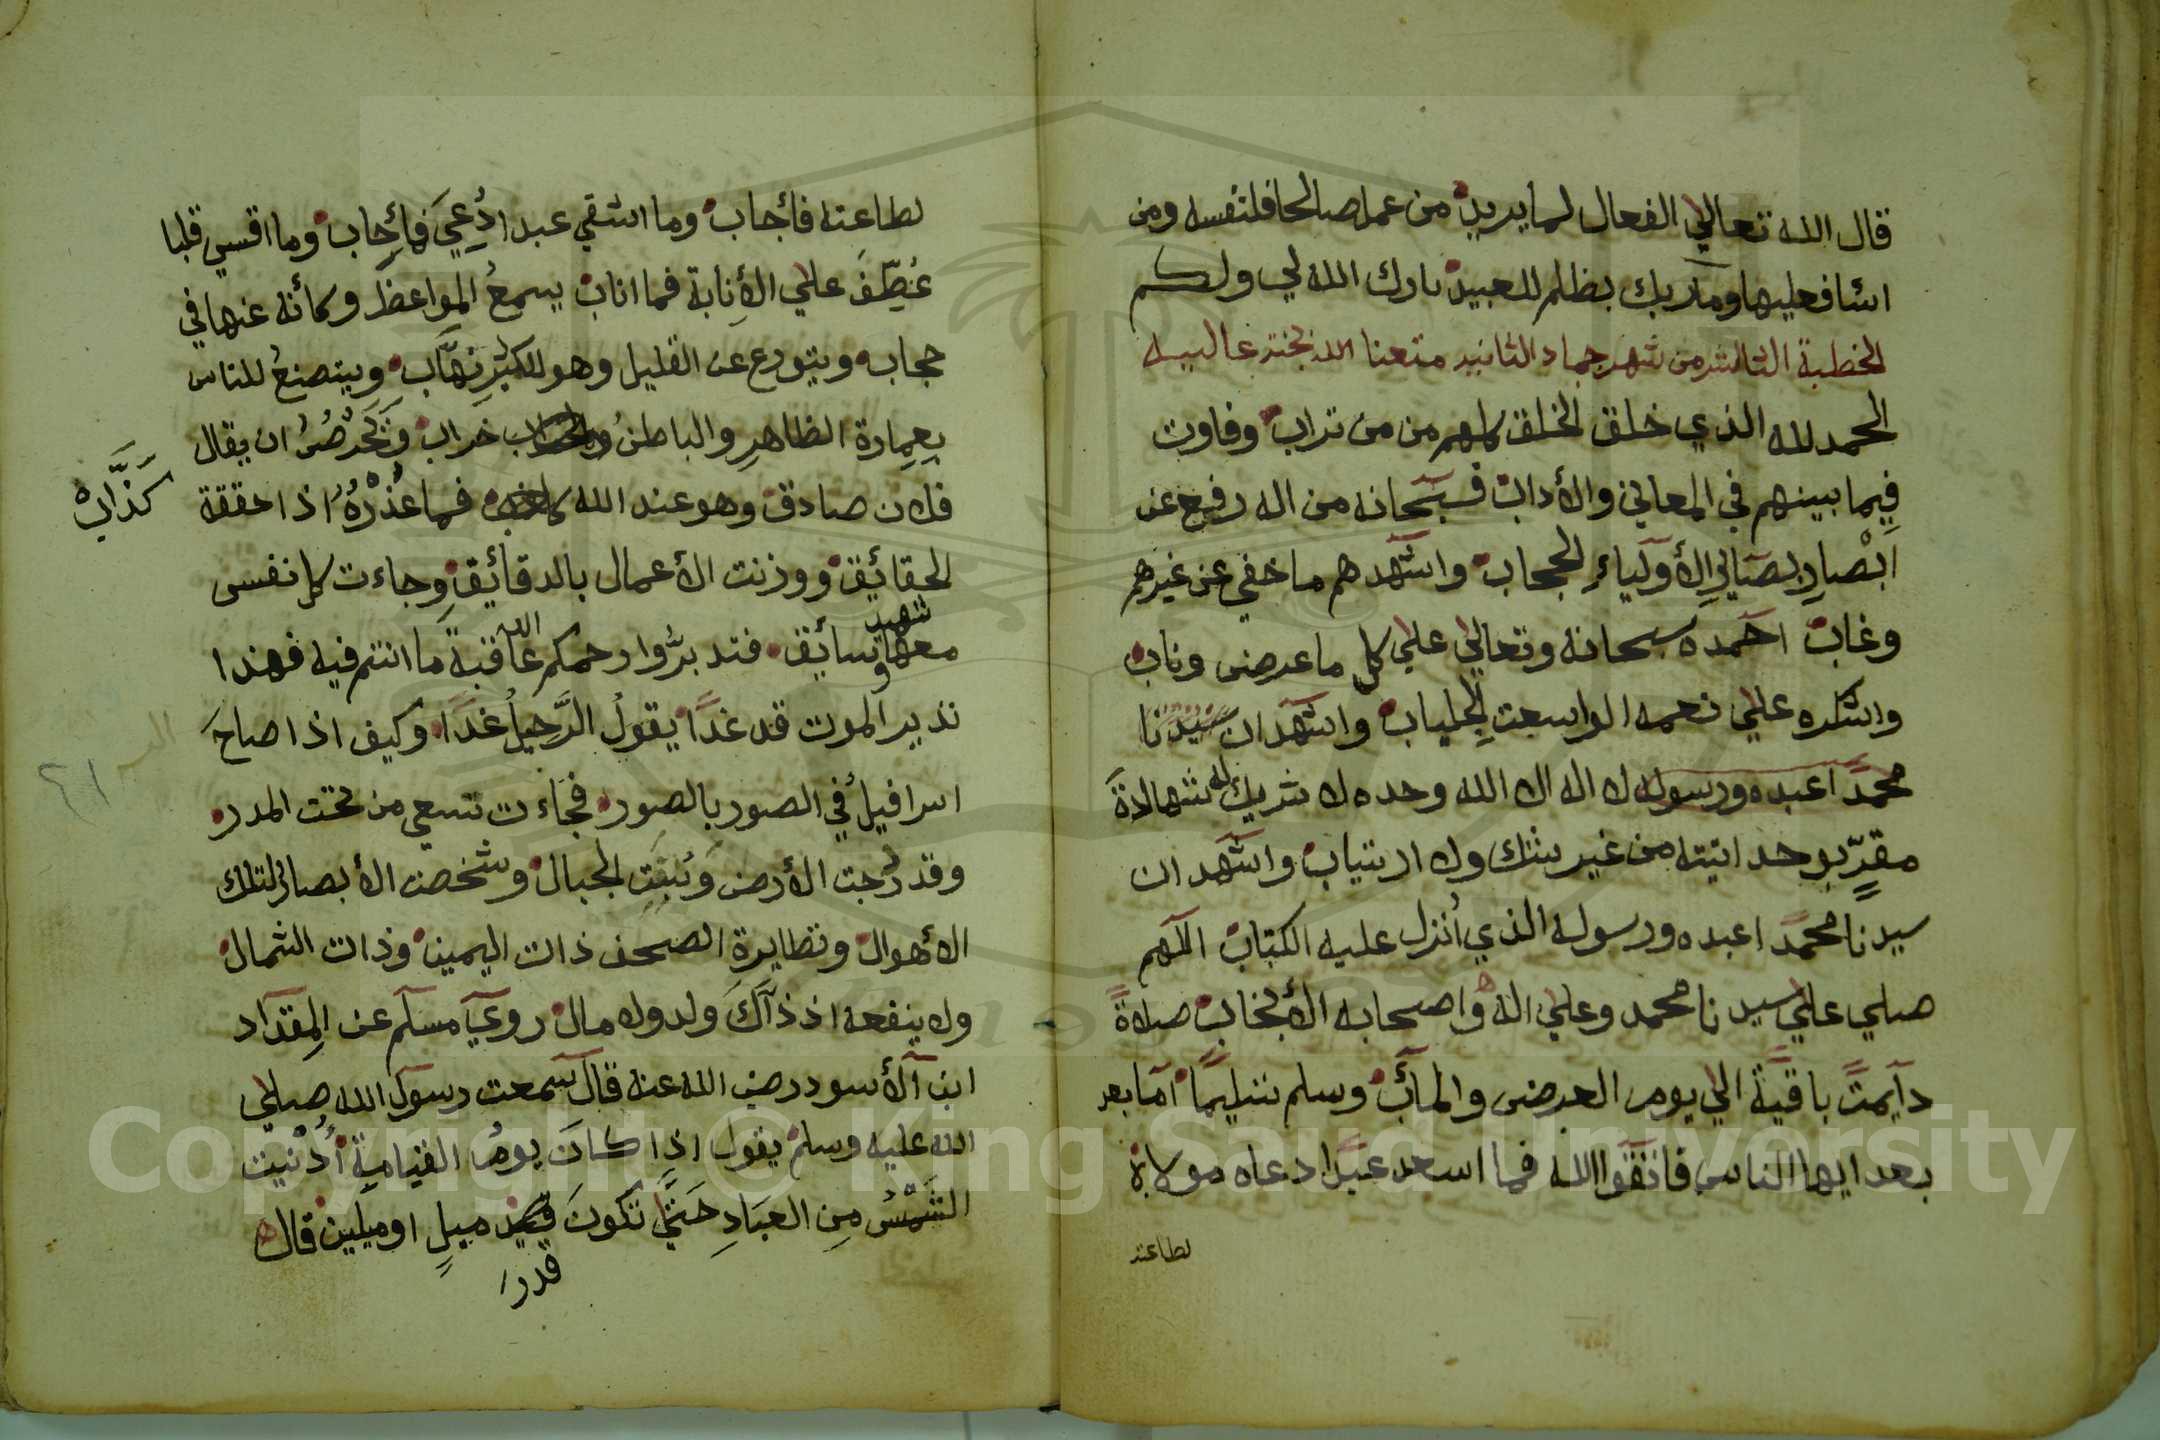 قال الله تعالي الفعال لما يريد من عمل صالحا فلنفسه ومن
اسا فعليها وما ربك بظلم للعبيد بارك الله لي ولكم
الخطبة الثالثة من شهر جماد الثانيه متعنا الله بجنته عاليه
الحمد لله الذي خلق الخلق كلهم من من تراب وفاوت
فيما بينهم في المعاني والأداب فسبحانه من اله رفيع عن
ابْصارِ بصَايِرِ الأولياءِ الحجاب واشهدهم ما خفي عن غيرهم
وغاب احمده سبحانه وتعالي علي كل ما عرض وناب
واشكره علي نعمه الواسعت الجلباب واشهد ان سيدنا
محمدا عبده ورسوله لا اله الا الله وحده لا شريك له شهادة
مقرٍّ بوحدانيته من غير شك ولا ارتياب واشهد ان
سيدنا محمدا عبده ورسوله الذي أنزل عليه الكتاب اللهم
صلي علي سيدنا محمد وعلي اله واصحابه الأنجاب صلاةً
دآيمتً باقيةً الي يوم العرض والمآب وسلم تسليمًا امابعد
بعد ايها الناس فاتقوا الله فما اسعد عبدا دعاه مولاه
لطاعته
لطاعته فأجاب وما اشقي عبدا دُعِيَ فما أجاب وما اقسي قلبا
عُطِّفَ علي الأنابة فما اناب يسمعُ المواعظ وكأنه عنها في
حجاب ويتورع عن القليل وهو للكثير نهَّاب ويتصنعُ للناس
بعمارة الظاهرِ والباطنُ خراب ان يقال
فلان صادق وهو عند الله فما عُذْرُهُ اذا حققة
كذَّاب
الحقائق ووزنت الأعمال بالدقائق وجاءت كل نفس
معها سائق وشهيد فتدبرُّوا رحمكم الله عاقبةَ ما انتم فيه فهذا
نذير الموت قد غدًا يقولُ الرَّحيلُ غدًا وكيف اذا صاحَ
اسرافيلُ في الصور بالصور فجاءت تسعي من تحت المدر
وقد رُجت الأرض ونُسِفَتِ الجبال وشخصت الأبصار لتلك
الأهوال وتطايرة الصحف ذات اليمين وذات الشمال
ولا ينفعه اذ ذآكَ ولد ولا مال رويَ مسلم عن المِقدَاد
ابن الأسود رضي الله عنه قال سمعت رسول الله صلي
الله عليه وسلم يقول اذا كانَ يومُ القيامةِ أُدْنيت
الشَّمْسُ مِن العبَادِ حَتيَّ تَكُونَ قيد ميلٍ او ميلين قال
قدر
٢١